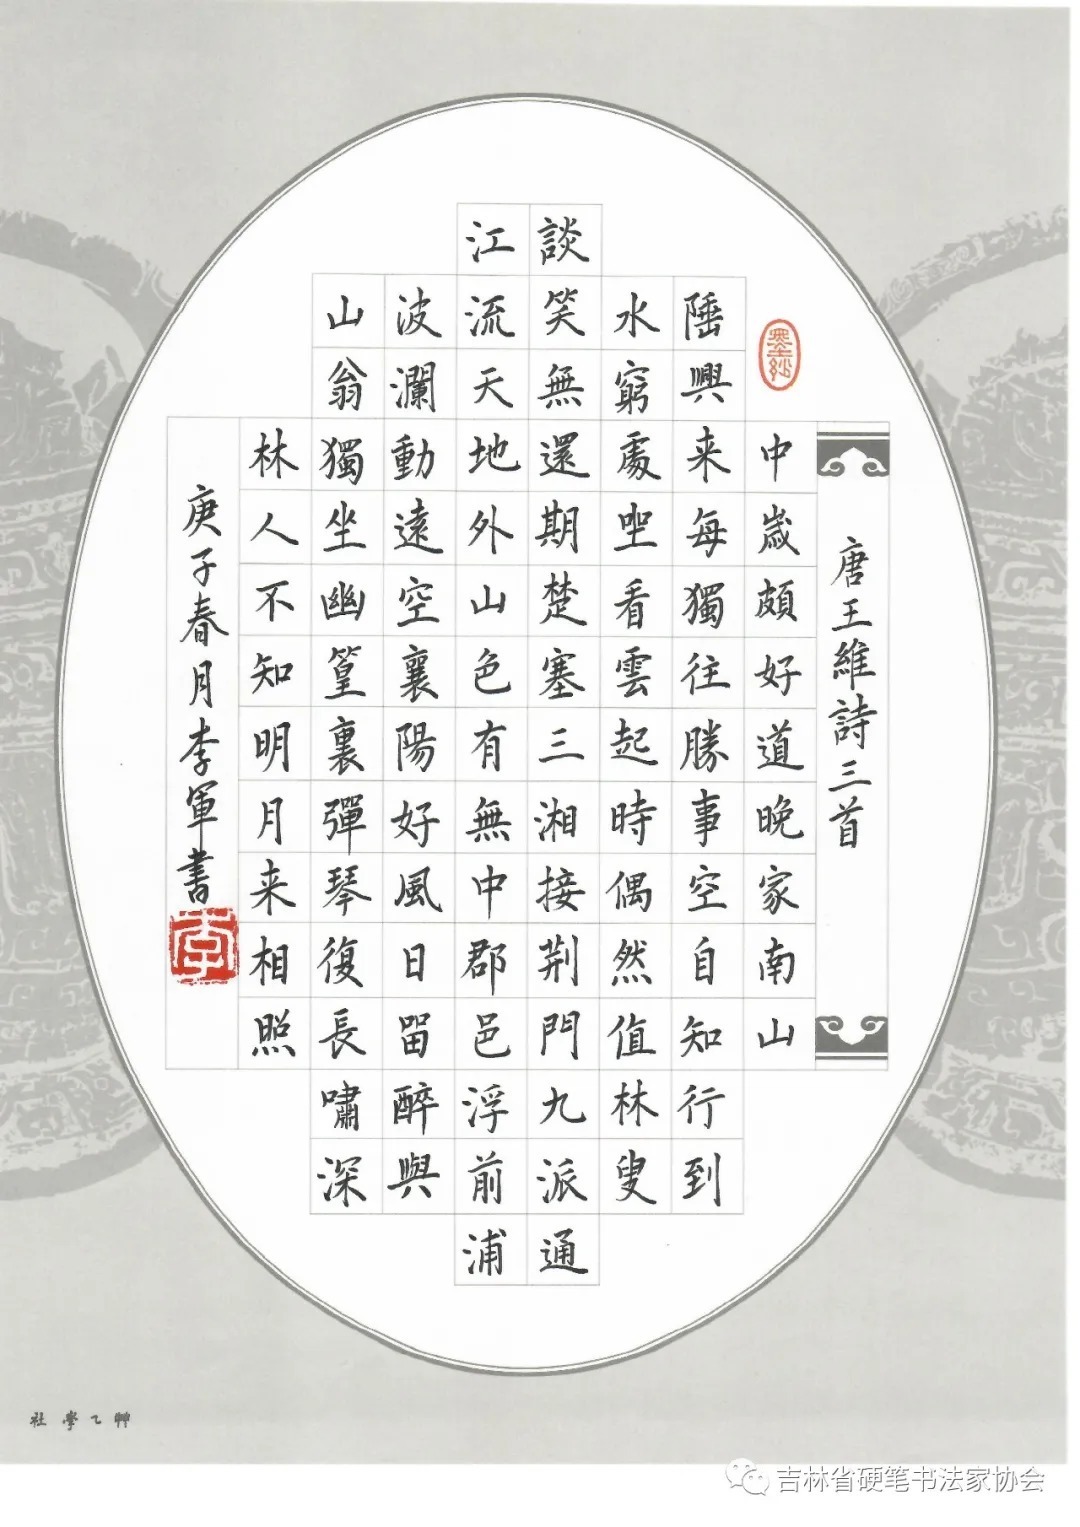 唐王維詩三首
中歳頗好道晚家南山
陲興来每獨往勝事空自知行到
水窮處坐看雲起時偶然值林叟
談笑無還期楚塞三湘接荆門九派通
江流天地外山色有無中郡邑浮前浦
波瀾動遠空襄陽好風日留醉與
山翁獨坐幽篁裏彈琴復長嘯深
林人不知明月来相照
庚子春月李軍書
李
艸乙學社
吉林省硬笔书法家协会